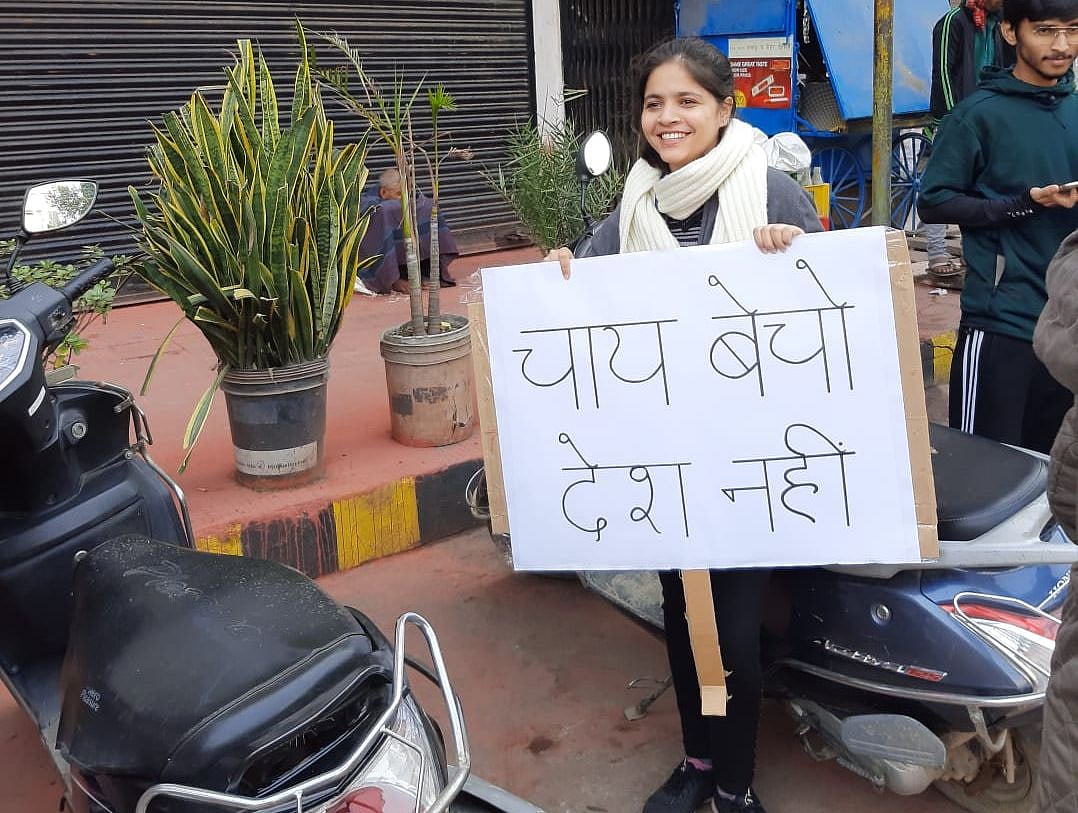 चाय बेचो
देश नहीं